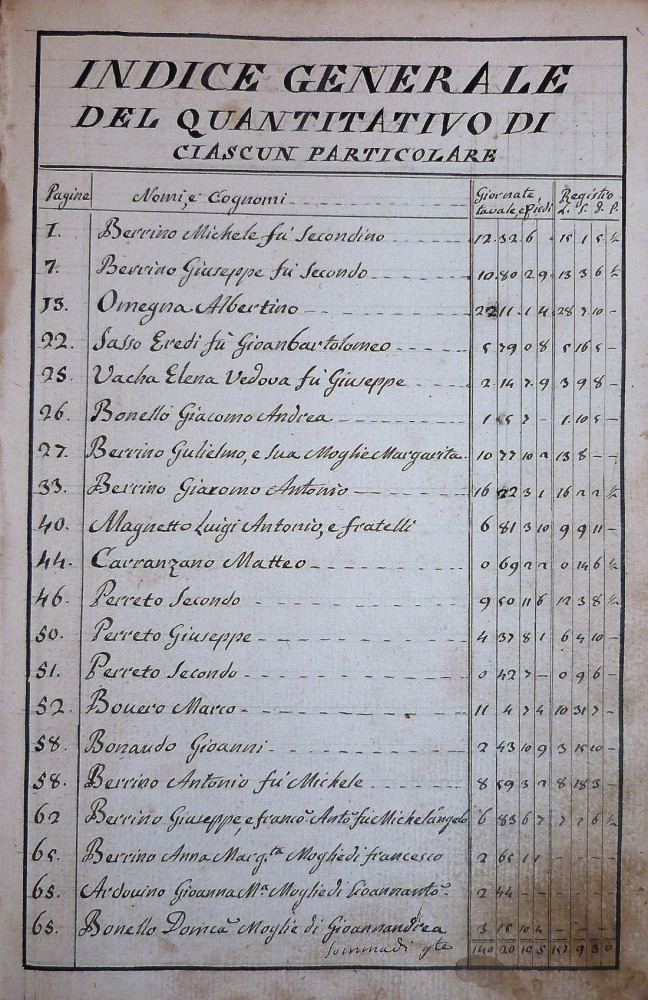 INDICE GENERALE
DEL QUANTITATIVO DI
CIASCUN PARTICOLARE
Pagine Nomi, e Cognomi Giornate, tavale, e Piedi Registro L. S. D. P.
1. Berrino Michele fù Secondino 12. 32 6 15 1 5 ½
7. Berrino Giuseppe fù Secondo 10. 80 2 9 13 3 6 ½
13. Omegna Albertino 22 11 1 4 28 7 10 -
22. Sasso Eredi fù Gioanbartolomeo 5 79 0 8 5 16 5 -
25. Vacha Elena Vedova fù Giuseppe 2 14 7 9 3 9 8 -
26. Bonello Giacomo Andrea 1 7 - 1. 10 5 -
27. Berrino Gulielmo, e Sua Moglie Margarita 10 77 10 2 13 8 - -
33. Berrino Giacomo Antonio 16 22 3 1 16 2 2 ½
40. Magnetto Luigi Antonio, e fratelli 6 81 3 10 9 9 11 -
44. Carranzano Matteo 0 69 2 2 0 14 6 ½
46. Perreto Secondo 9 50 11 6 12 3 8 ½
50. Perreto Giuseppe 4 37 8 1 6 4 10 -
51. Perreto Secondo 0 42 7 - 0 9 6 -
52. Bouero Marco 11 4 7 4 10 7 -
58. Bonaudo Gioanni 2 43 10 9 3 15 10 -
58. Berrino Antonio fù Michele 8 59 3 2 8 18 3 -
62 Berrino Giuseppe, e franco Anto fù Michelangelo 6 83 6 7 7 2 6 ½
65. Berrino Anna Marg.ta Moglie di francesco 2 65 1 1 - - - -
65. Ardouino Gioanna Ma Moglie di Gioannanto. 2 44 - - - - - -
65. Bonello Domca Moglie di Gioannandrea 3 15 10 4 - - - -
Somma di gte 140 20 10 5 157 9 3 0